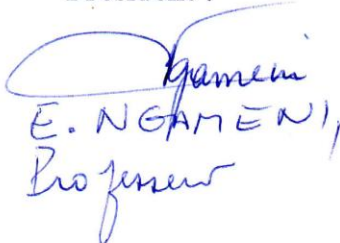 Ngameni
E. NGAMENI,
Professeur